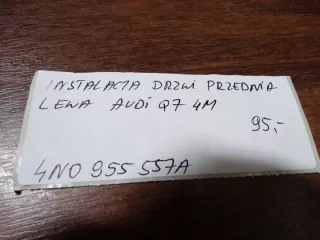 INSTALACJA DRZWI PRZEDNIA
LEWA AUDI Q7 4M
95,-
4NO 955 557A